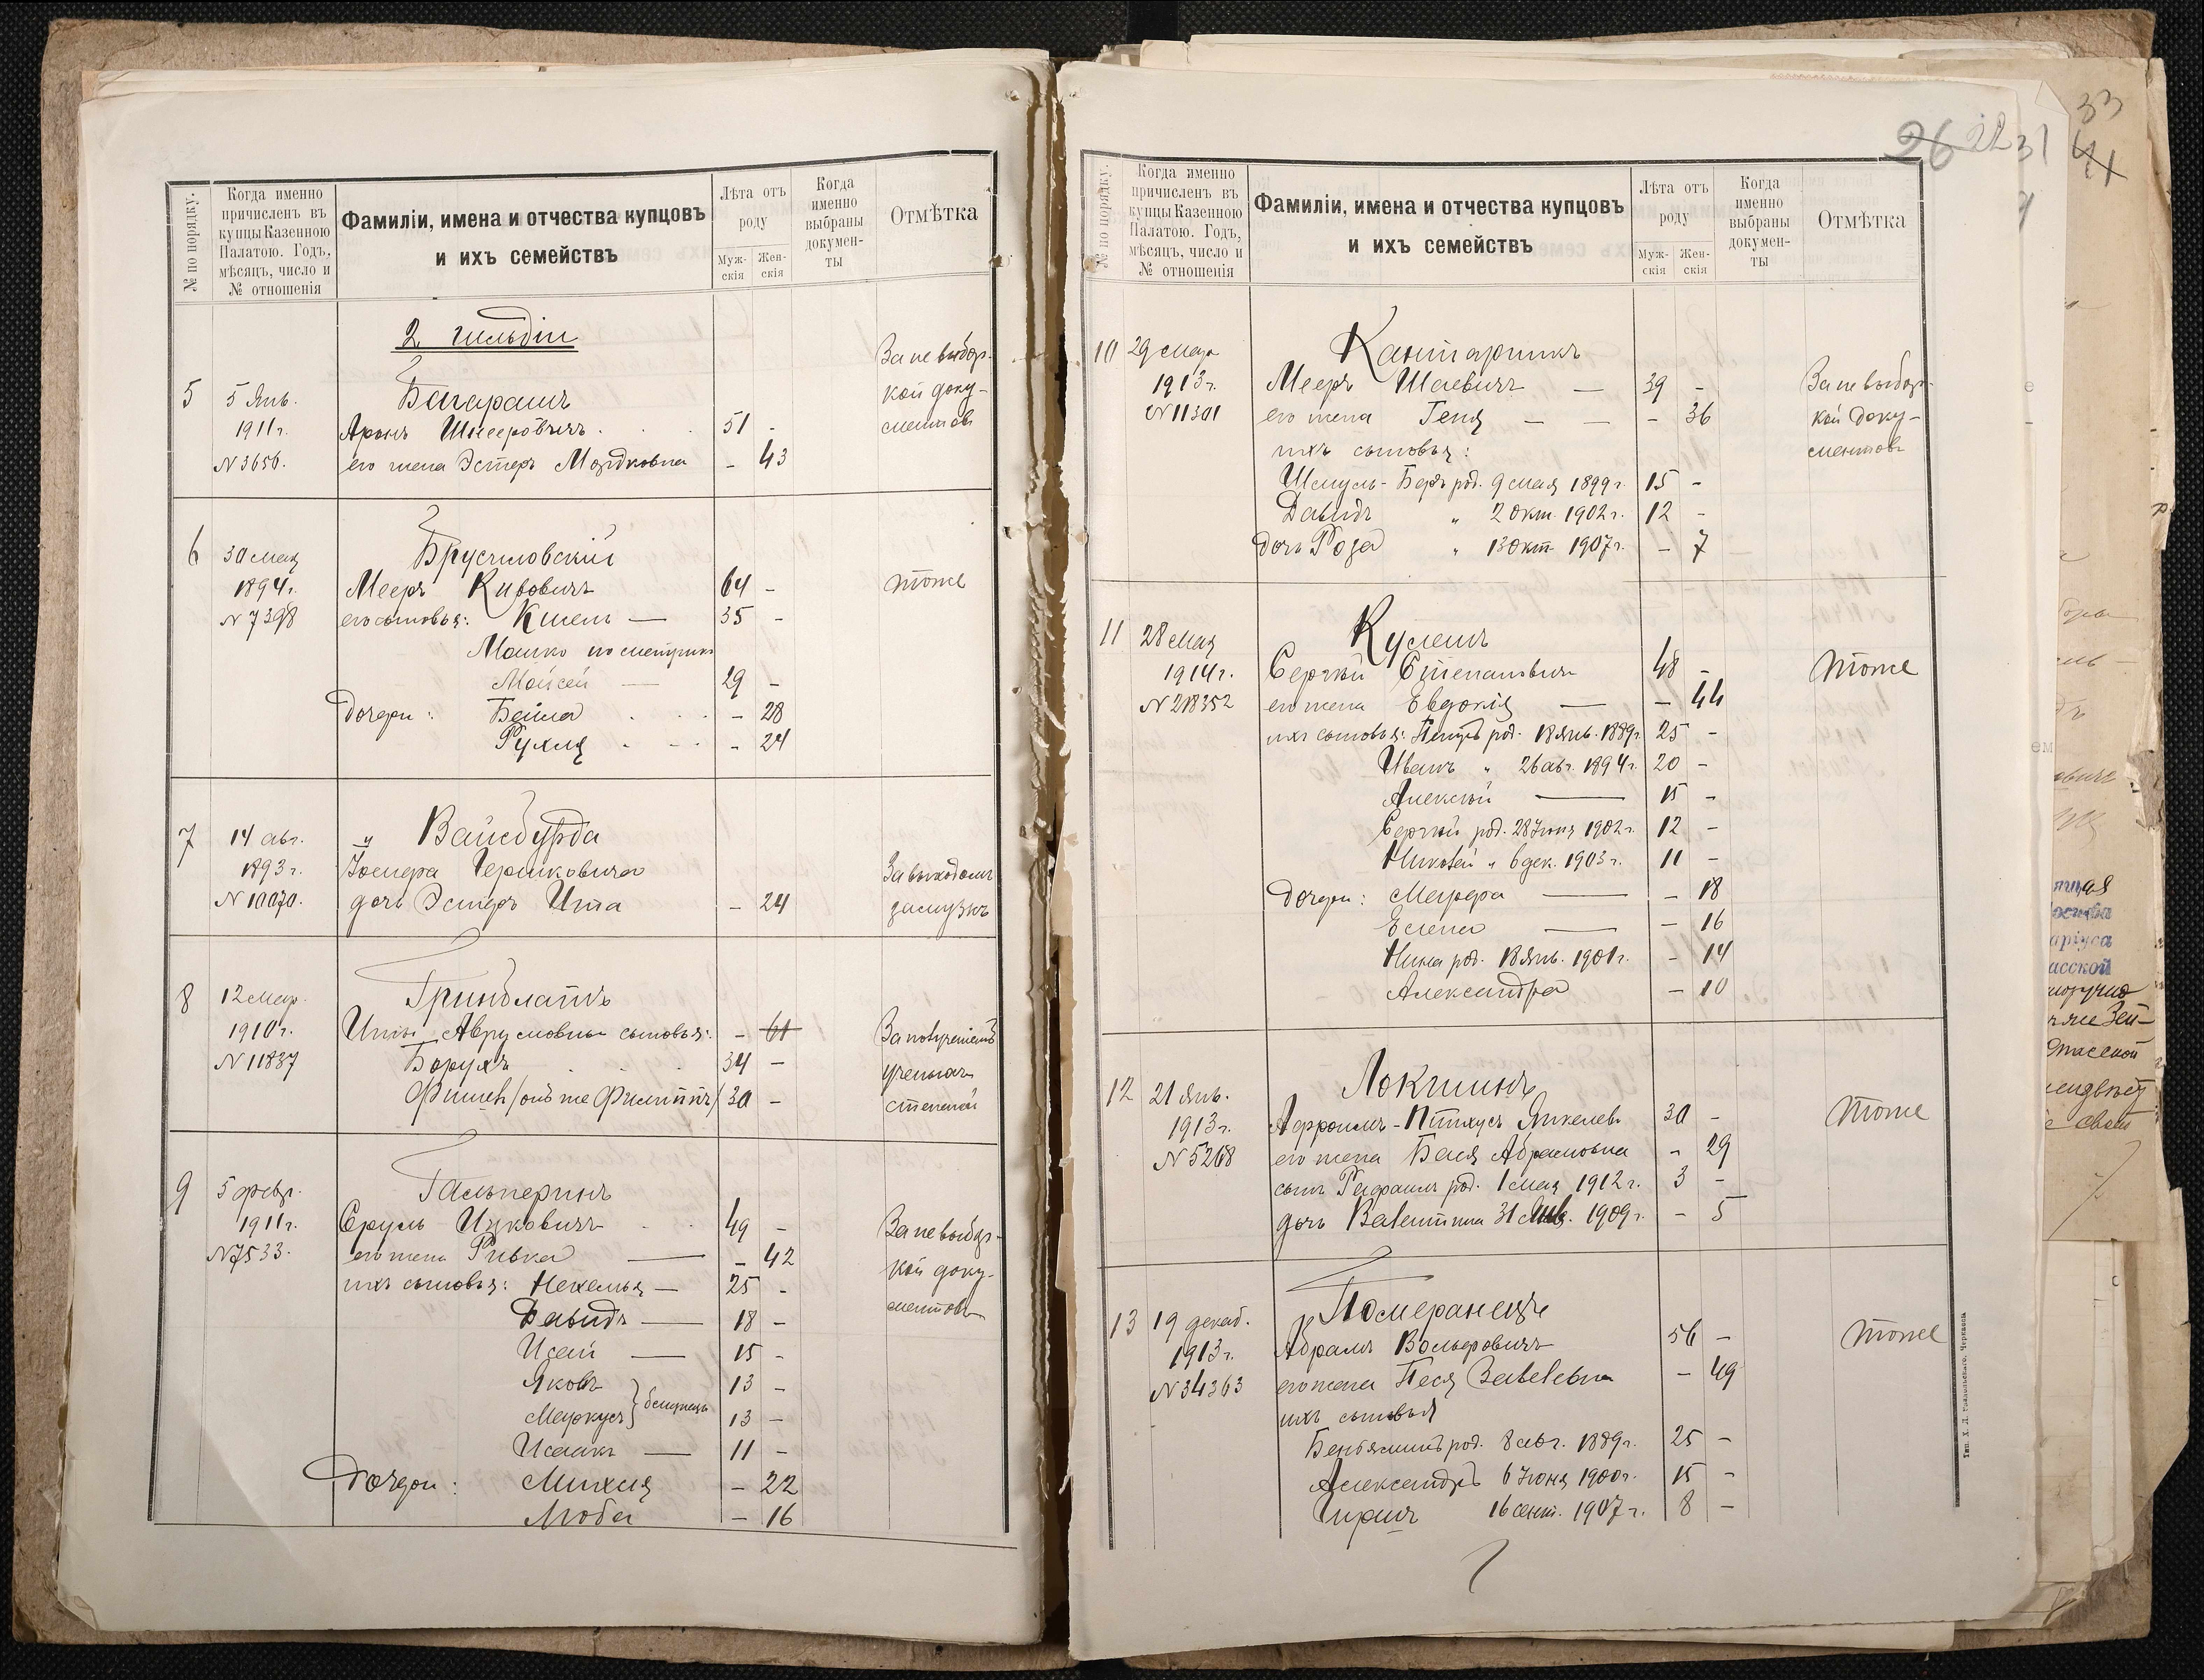 № по порядку.
Когда именно
причисленъ въ
купцы Казенною
Палатою. Годъ,
мѣсяцъ, число и
№ отношенія
Фамиліи, имена и отчества купцовъ
и ихъ семействъ
Лѣта отъ
роду
Муж-
скія
Жен-
скія
Когда
именно
выбраны
докумен-
ты
Отмѣтка
2 гильдіи
5 5 Янв. Багарашъ За не выбор-
1911 г. Аронъ 51 - кой доку-
№ 3656. его жена Эстеръ Мордковна - 43 ментовъ
6 30 мая Брусиловскій
1894 г. Мееръ Кивовичъ 64 - тоже
№ 7398 его сыновья: 35 -
Мошко по метрикѣ
Мойсей — 29 -
Дочери: Бейла - 28
Рухля - 24
7 14 авг. Вайсбурда
1893 г. Іосифа Гершковича За выходомъ
№ 10070. дочь Эстеръ Ита - 24 замужъ
8 12 мар. Гринблатъ
1910 г. Аврумовны сыновья: - 61 За полученіемъ
№ 11837 Борухъ 34 - ученыхъ
Фишель /онъ же Филиппъ/ 30 - степеней
9 5 февр. Гальперинъ
1911 г. Сруль Ицковичъ 49 - За не выбор-
№ 7533. его жена Ривка — - 42 кой доку-
ихъ сыновья: Нехемья — 25 - ментовъ
Давидъ — 18 -
Исай — 15 -
Яковъ } близнецы 13 -
Маркусъ 13 -
Исаакъ — 11 -
Дочери: Михля - 22
Люба - 16
26 22 31 33 41
№ по порядку.
Когда именно
причисленъ въ
купцы Казенною
Палатою. Годъ,
мѣсяцъ, число и
№ отношенія
Фамиліи, имена и отчества купцовъ
и ихъ семействъ
Лѣта отъ
роду
Муж-
скія
Жен-
скія
Когда
именно
выбраны
докумен-
ты
Отмѣтка
10 29 мар Кантарникъ
1913 г. Мееръ Шаевичъ — 39 - За не выбор-
№ 11301 его жена Геня — — - 36 кой доку-
ихъ сыновья: ментовъ
Шмуль-Беръ род. 9 мая 1899 г. 15 -
Давидъ " 2 Окт. 1902 г. 12 -
дочь Роза " 13 Окт 1907 г. - 7
11 28 мая Кулешъ
1914 г. Сергѣй Степановичъ 48 - тоже
№ 218352 его жена Евдокія — - 44
ихъ сыновья: Петръ род. 18 Янв. 1889 г. 25 -
Иванъ " 26 авг. 1894 г. 20 -
Алексѣй — 15 -
Сергѣй род. 28 Іюня 1902 г. 12 -
Николай " 6 дек. 1903 г. 11 -
Дочери: Марфа — - 18
Елена — - 16
Нина род. 18 Янв. 1901 г. - 14
Александра - 10
12 21 Янв. Локшинъ
1913 г. Афроимъ-Пинхусъ Янкелев. 30 - тоже
№ 5268 его жена Бася Абрамовна - 29
сынъ Рафаилъ род. 1 мая 1912 г. 3 -
дочь Валентина 31 Янв. 1909 г. - 5
13 19 декаб. Померанецъ
1913 г. Абрамъ Вольфовичъ 56 - тоже
№ 34363 его жена Песя Завелевна - 49
ихъ сыновья
Веньяминъ род. 8 авг. 1889 г. 25 -
Александръ 6 Іюня 1900 г. 15 -
Гиршъ 16 сент. 1907 г. 8 -